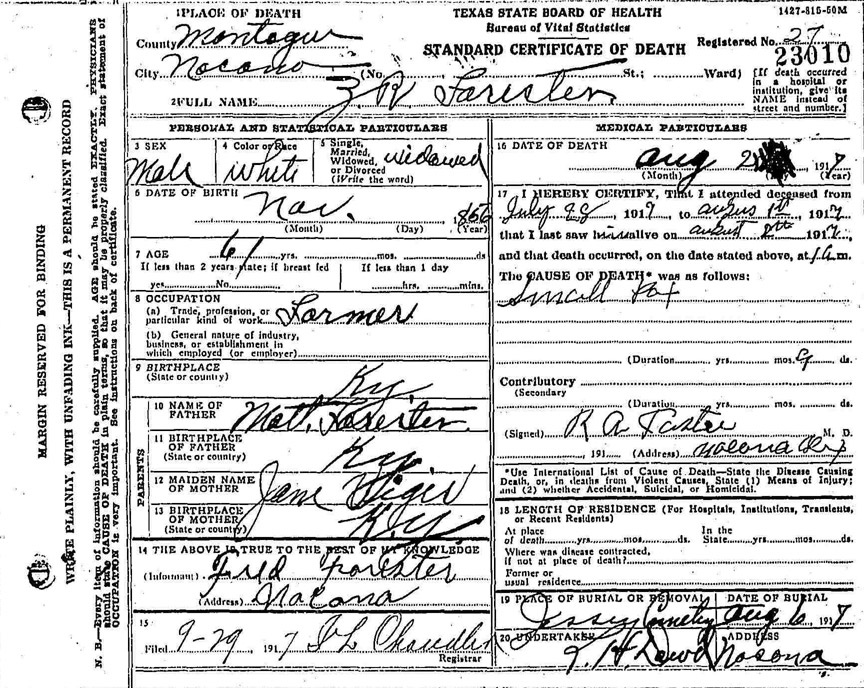 1427-815-50M
1 PLACE OF DEATH
County Montague
City Nocona (No. St.; Ward)
TEXAS STATE BOARD OF HEALTH
Bureau of Vital Statistics
STANDARD CERTIFICATE OF DEATH
Registered No. 27
23010
[If death occurred in a hospital or institution, give its NAME instead of street and number.]
2 FULL NAME Z R Forester
PERSONAL AND STATISTICAL PARTICULARS
3 SEX Male
4 Color or Race White
5 Single, Married, Widowed, or Divorced (Write the word) widowed
6 DATE OF BIRTH Nov. 1856
(Month) (Day) (Year)
7 AGE 61 yrs. mos. ds
If less than 2 years state; if breast fed
yes No.
If less than 1 day
hrs. mins.
8 OCCUPATION
(a) Trade, profession, or particular kind of work Farmer
(b) General nature of industry, business, or establishment in which employed (or employer)
9 BIRTHPLACE
(State or country) Ky.
PARENTS
10 NAME OF FATHER Forester
11 BIRTHPLACE OF FATHER
(State or country) Ky
12 MAIDEN NAME OF MOTHER Jane
13 BIRTHPLACE OF MOTHER
(State or country) Ky.
14 THE ABOVE IS TRUE TO THE BEST OF MY KNOWLEDGE
(Informant) Fred Forester
(Address) Nocona
15
Filed 9-29 1917 Chandler
Registrar
MEDICAL PARTICULARS
16 DATE OF DEATH
Aug 1917
(Month) (Year)
17 I HEREBY CERTIFY, That I attended deceased from
July 28 1917 to August 1st 1917
that I last saw him alive on August 1917,
and that death occurred, on the date stated above, at m.
The CAUSE OF DEATH* was as follows:
Small Pox
(Duration) yrs. mos. ds.
Contributory
(Secondary
(Duration) yrs. mos. ds.
(Signed) R A M. D.
191 (Address) Nocona Tex
*Use International List of Cause of Death—State the Disease Causing Death, or, in deaths from Violent Causes, State (1) Means of Injury; and (2) whether Accidental, Suicidal, or Homicidal.
18 LENGTH OF RESIDENCE (For Hospitals, Institutions, Transients, or Recent Residents)
At place of death yrs. mos. ds. In the State yrs. mos. ds.
Where was disease contracted, if not at place of death?
Former or usual residence
19 PLACE OF BURIAL OR REMOVAL Cemetery
DATE OF BURIAL Aug 6 1917
20 UNDERTAKER
ADDRESS Nocona
MARGIN RESERVED FOR BINDING
WRITE PLAINLY, WITH UNFADING INK—THIS IS A PERMANENT RECORD
N. B.—Every item of information should be carefully supplied. AGE should be stated EXACTLY. PHYSICIANS
should state CAUSE OF DEATH in plain terms, so that it may be properly classified. Exact statement of
OCCUPATION is very important. See instructions on back of certificate.